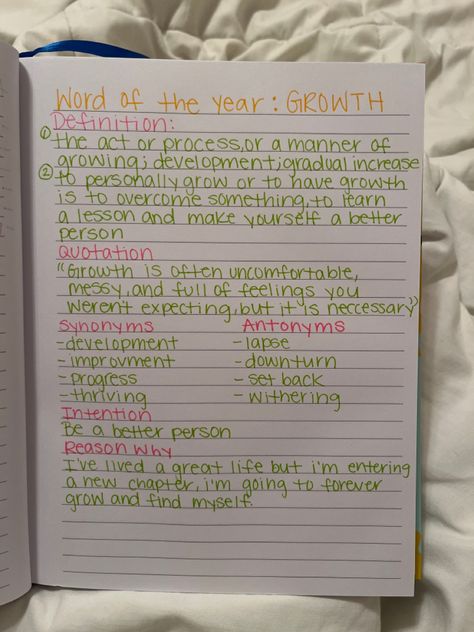 Word of the year: GROWTH
Definition:
① the act or process, or a manner of
growing; development; gradual increase
② to personally grow or to have growth
is to overcome something, to learn
a lesson and make yourself a better
person
Quotation
"Growth is often uncomfortable,
messy, and full of feelings you
weren't expecting, but it is neccessary"
Synonyms Antonyms
-development -lapse
-improvment -downturn
-progress -set back
-thriving -withering
Intention
Be a better person
Reason Why
I've lived a great life but i'm entering
a new chapter, i'm going to forever
grow and find myself.